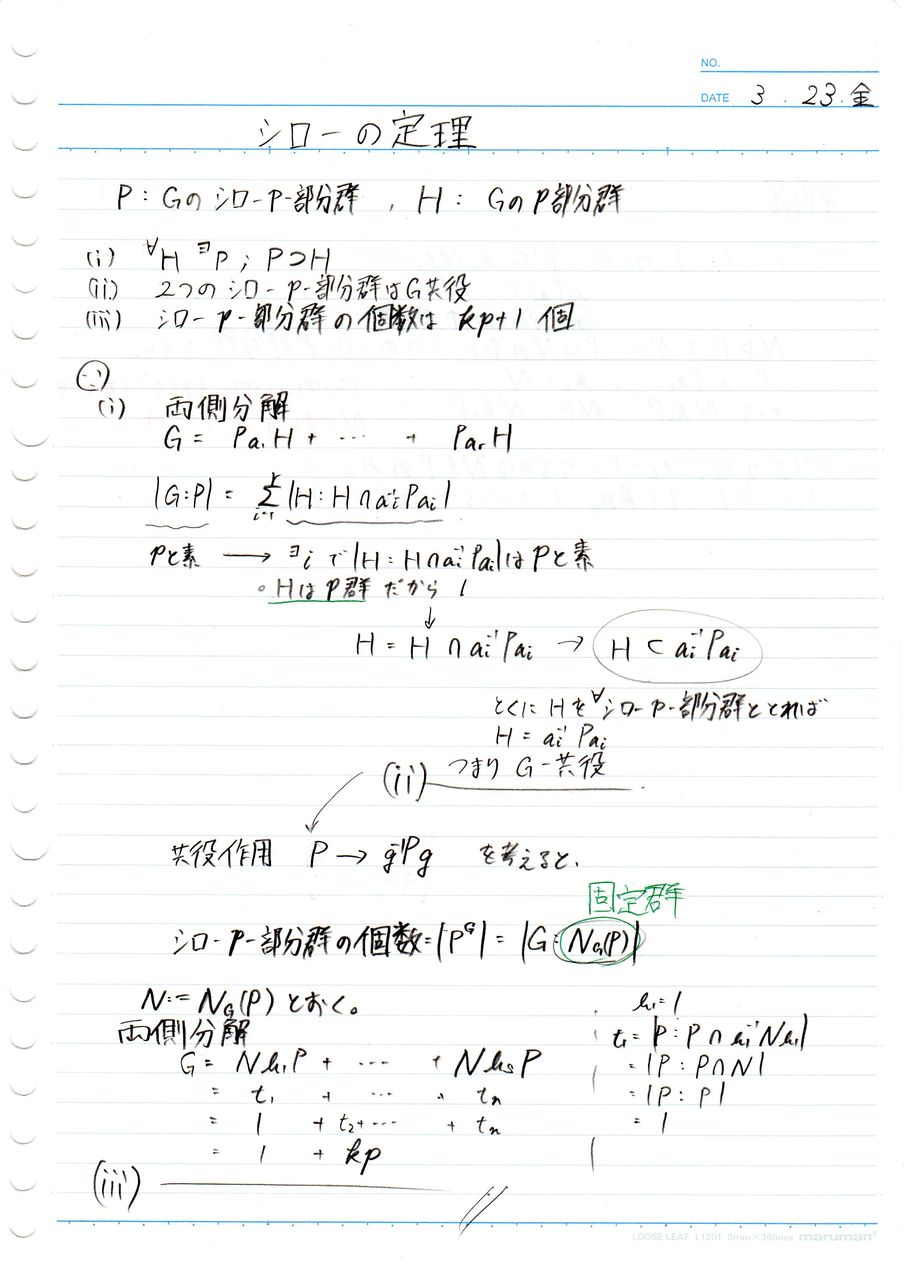 NO.
DATE 3 . 23. 金
シローの定理
P : Gの シロー P-部分群 , H : Gの P部分群
(i) ∀H ∃P ; P⊃H
(ii) 2つの シロー P-部分群は G共役
(iii) シロー P-部分群の個数は kp+1 個
∵)
(i) 両側分解
G = Pa₁H + … + PaᵣH
|G:P| = Σ_{i=1}^{r} |H : H∩aᵢ⁻¹Paᵢ|
Pと素 → ∃i で |H : H∩aᵢ⁻¹Paᵢ| は Pと素
。Hは P群 だから 1
↓
H = H ∩ aᵢ⁻¹Paᵢ → H ⊂ aᵢ⁻¹Paᵢ
とくに Hを ∀シロー P-部分群ととれば
H = aᵢ⁻¹Paᵢ
(ii) つまり G-共役
共役作用 P → g⁻¹Pg を考えると、
固定群
シロー P-部分群の個数 = |P^G| = |G : N_G(P)|
N := N_G(P) とおく。
両側分解
G = Nh₁P + … + NhₛP
= t₁ + … + tₙ
= 1 + t₂ + … + tₙ
= 1 + kp
h₁ = 1
t₁ = |P : P∩h₁⁻¹Nh₁|
= |P : P∩N|
= |P : P|
= 1
(iii)
LOOSE LEAF L1201 6mm×36lines maruman